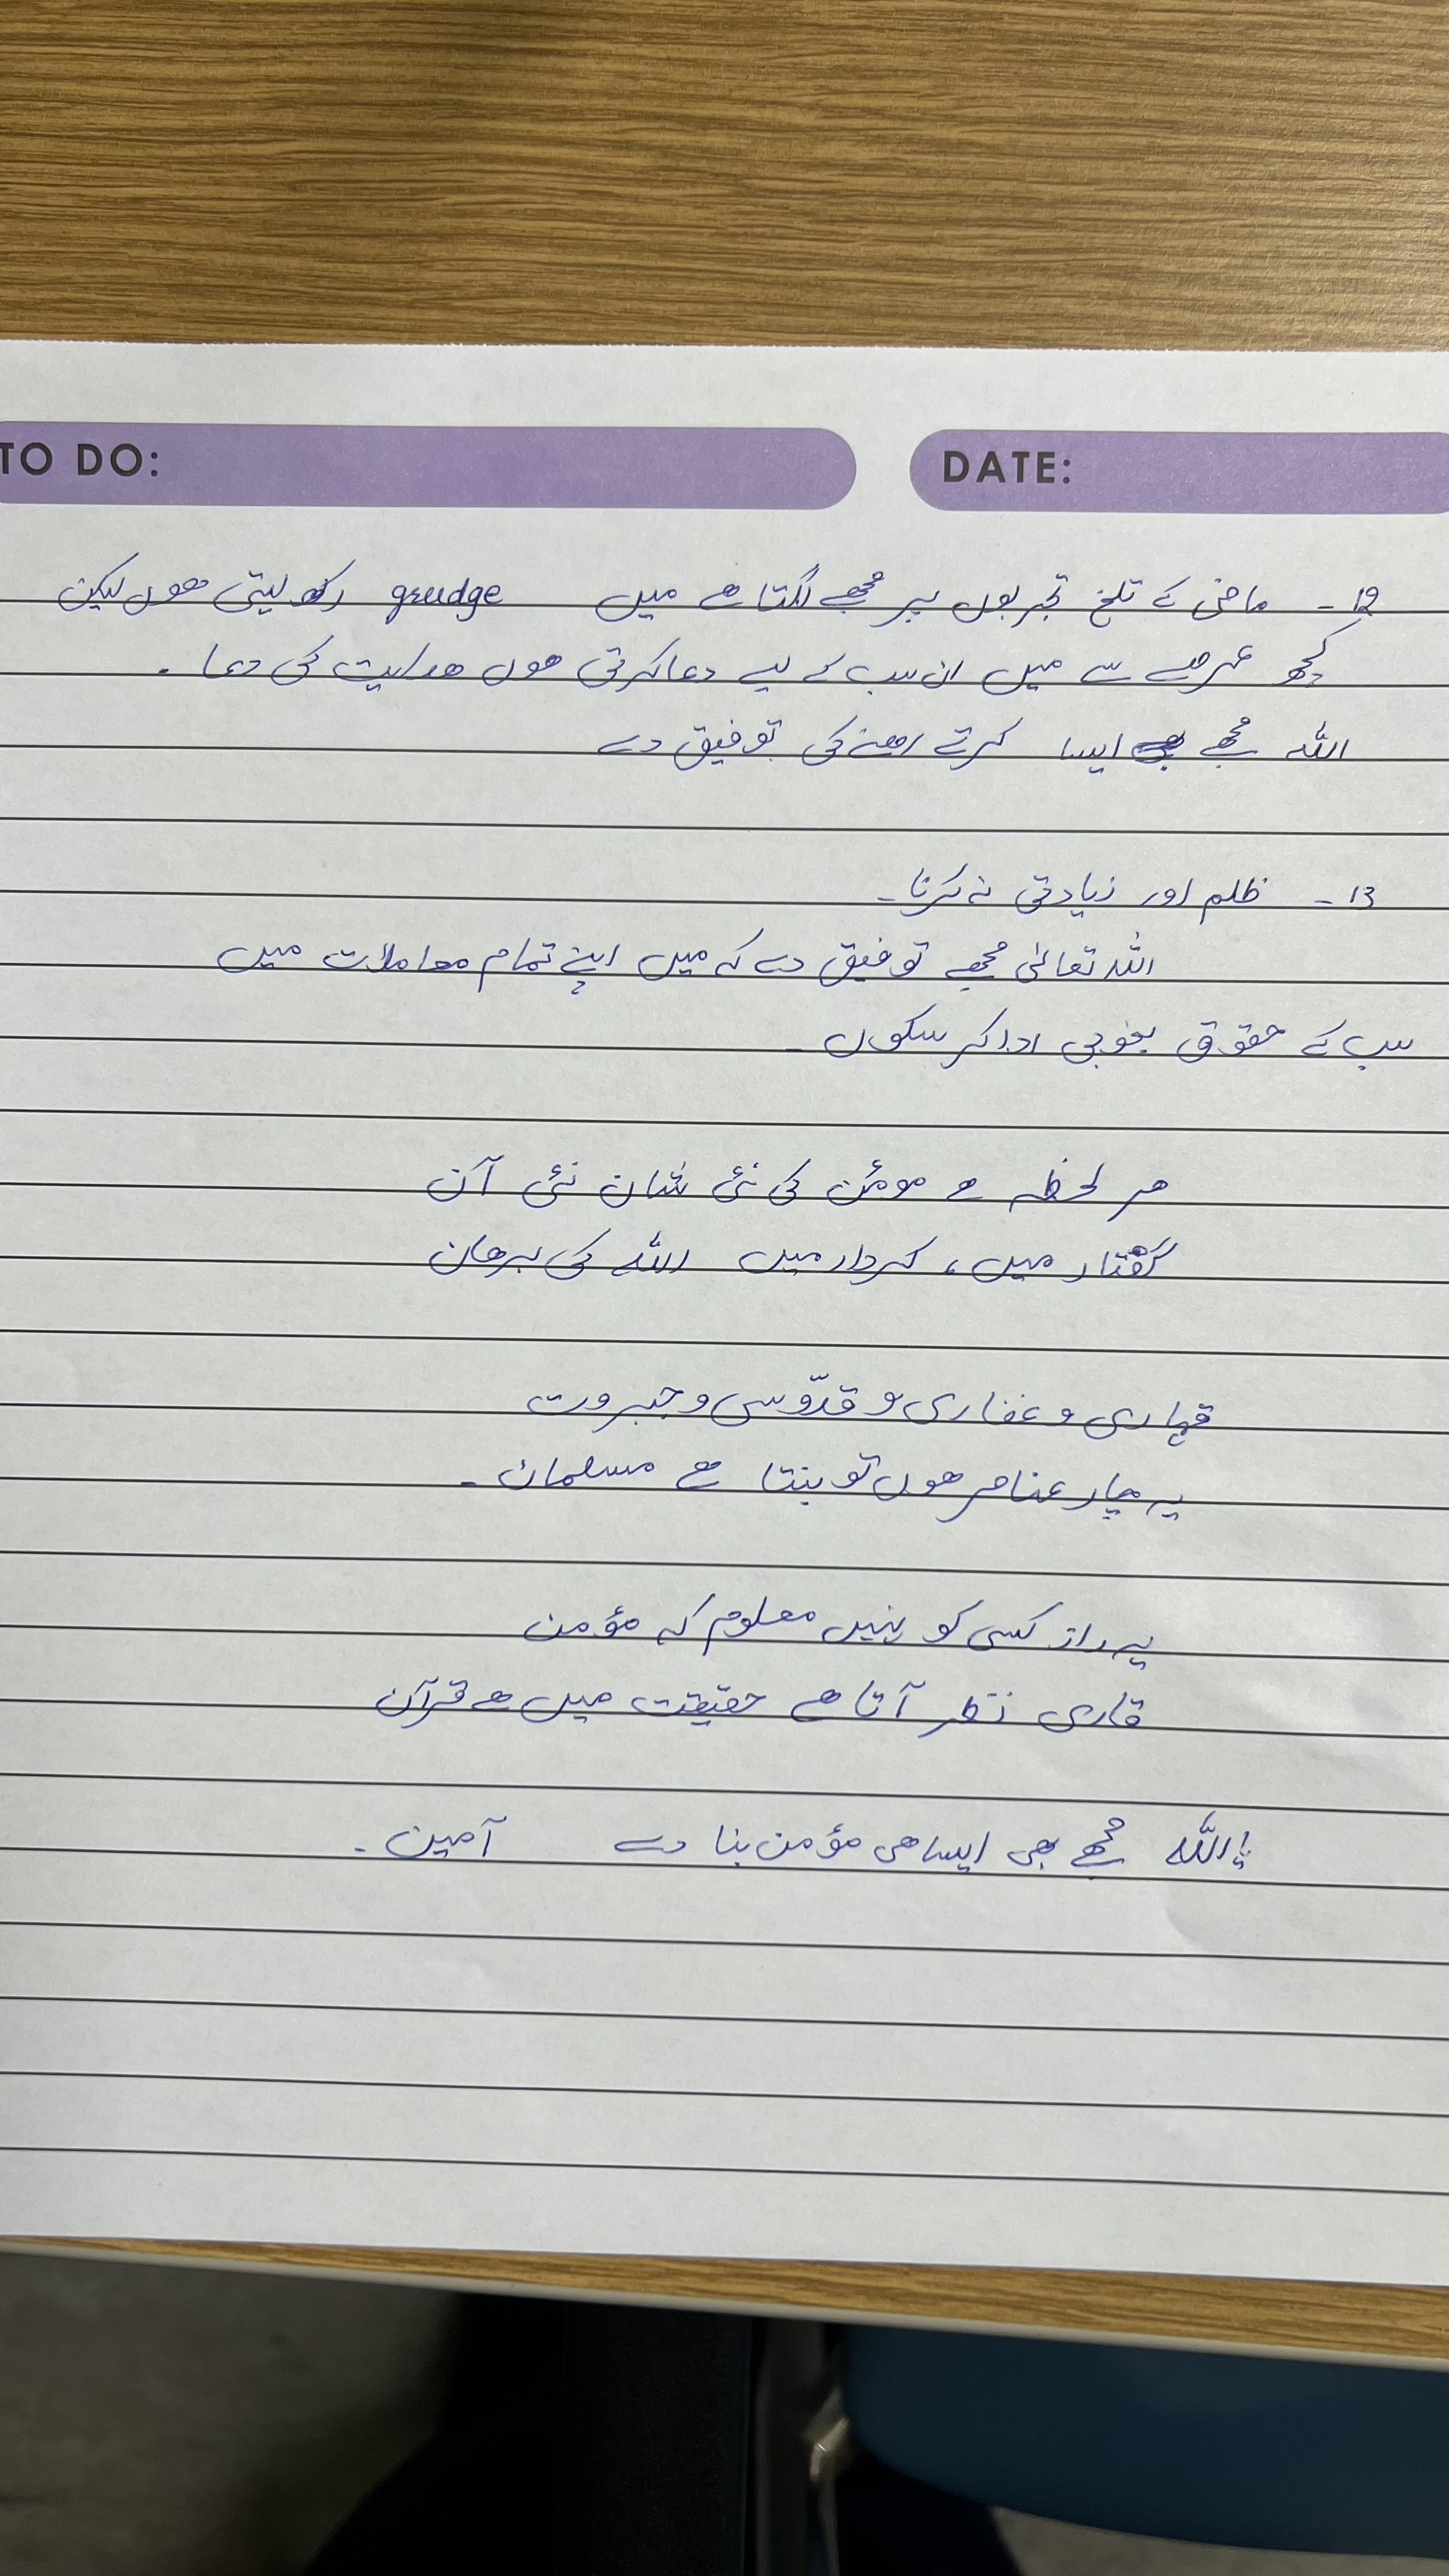 TO DO:
DATE:
12- ماضی کے تلخ تجربوں پر مجھے لگتا ھے میں grudge رکھ لیتی ھوں لیکن
کچھ عرصے سے میں ان سب کے لیے دعا کرتی ھوں ھدایت کی دعا۔
اللہ مجھے ایسا کرتے رھنے کی توفیق دے
13- ظلم اور زیادتی نہ کرنا۔
اللہ تعالیٰ مجھے توفیق دے کہ میں اپنے تمام معاملات میں
سب کے حقوق بخوبی ادا کر سکوں۔
ھر لحظہ ھے مومن کی نئی شان نئی آن
گفتار میں، کردار میں اللہ کی برھان
قہاری و غفاری و قدّوسی و جبروت
یہ چار عناصر ھوں تو بنتا ھے مسلمان۔
یہ راز کسی کو نہیں معلوم کہ مؤمن
قاری نظر آتا ھے حقیقت میں ھے قرآن
یااللہ مجھے بھی ایسا ھی مؤمن بنا دے آمین۔